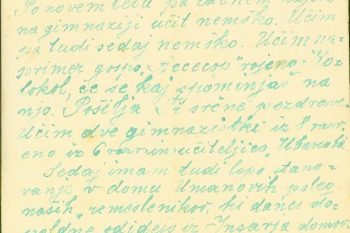 Po novem letu pa začnem
na gimnaziji učit nemško. Učim
pa tudi sedaj nemško. Učim na-
primer gospo rojeno
če se kaj spominjaš na
njo. Pošilja Ti srčne pozdrave.
Učim dve gimnazistki iz 8 razr.
eno iz 6 razr. in učiteljico
Sedaj imam tudi lepo stano-
vanje v domu Umanovih poleg
naših "remeslenikov, ki danes do-
poldne odidejo iz domov.